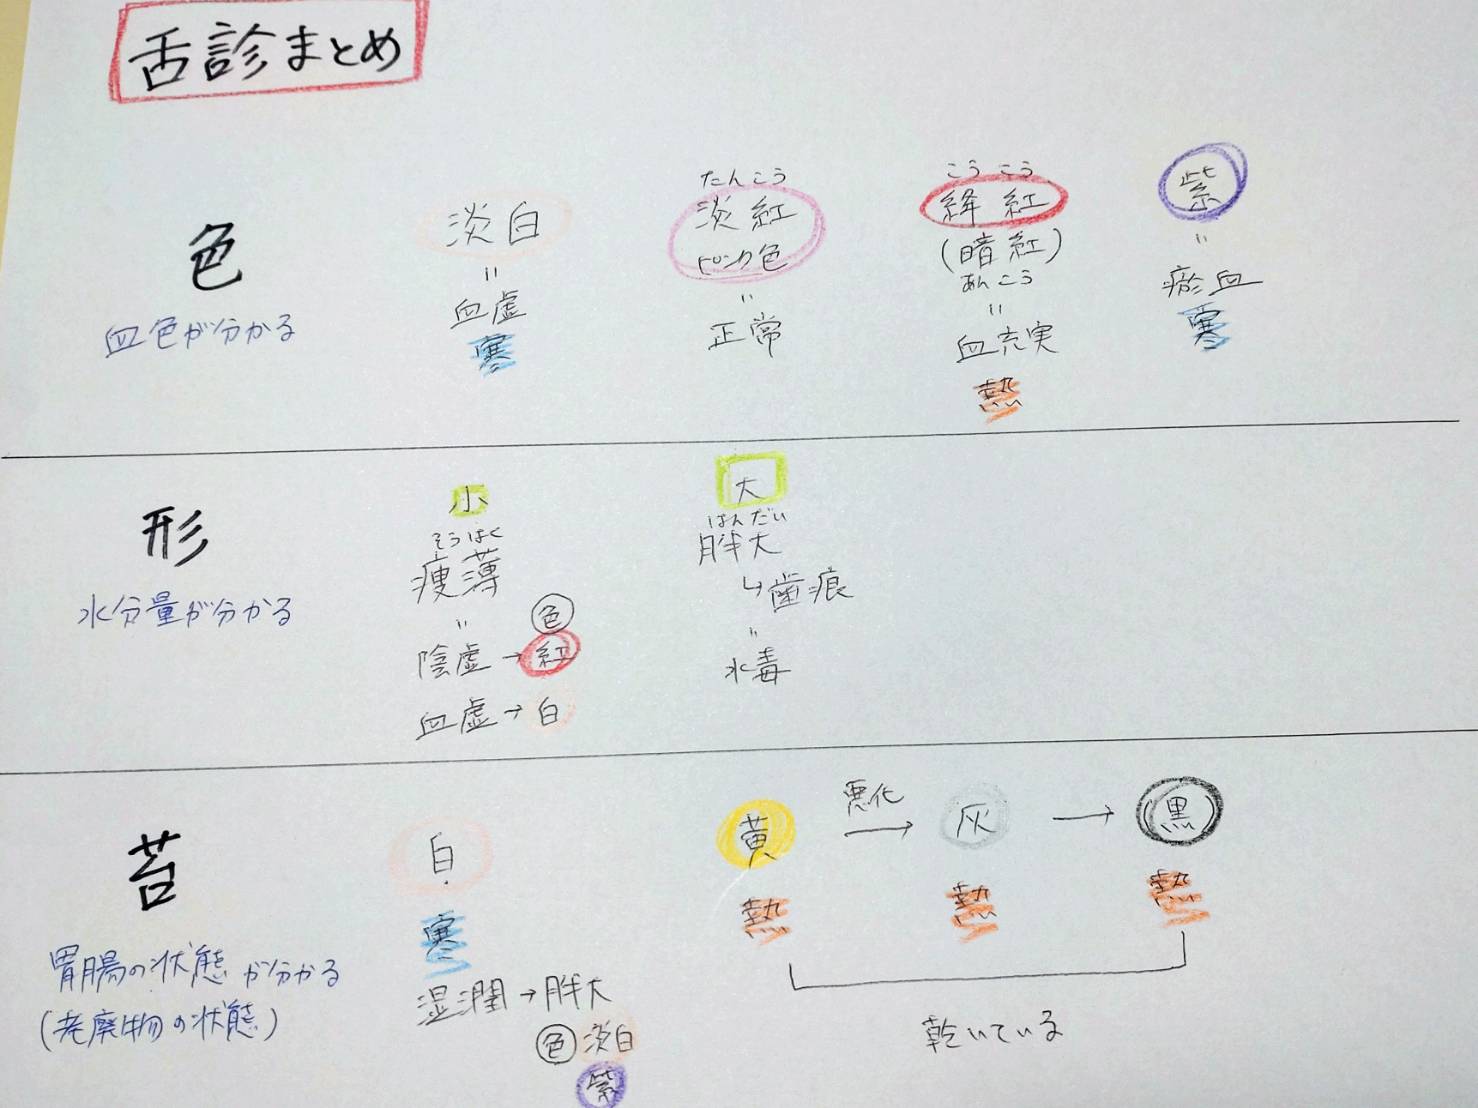 舌診まとめ
色
血色が分かる
淡白
〃
血虚
寒
たんこう
淡紅
ピンク色
〃
正常
こうこう
絳紅
(暗紅)
あんこう
〃
血充実
熱
紫
〃
瘀血
寒
形
水分量が分かる
小
そうはく
痩薄
〃
陰虚→紅
色
血虚→白
大
はんだい
胖大
↳歯痕
〃
水毒
苔
胃腸の状態が分かる
(老廃物の状態)
白
寒
湿潤→胖大
色 淡白
紫
黄
熱
悪化
→
灰
熱
→
黒
熱
乾いている